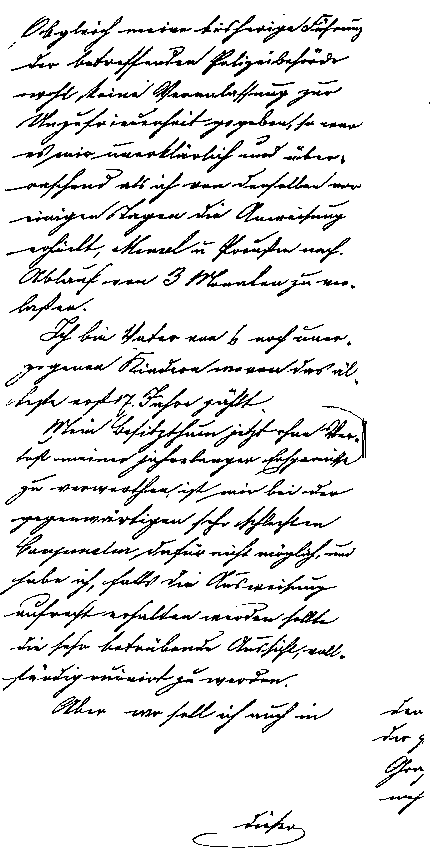 Obgleich meine bisherige Führung
der betreffenden Polizeibehörde
wohl keine Veranlassung zur
Unzufriedenheit gegeben, so war
es mir unerklärlich und über-
raschend als ich von derselben vor
einigen Tagen die Anweisung
erhielt, Memel u Preußen nach
Ablauf von 3 Monaten zu ver-
laßen.
Ich bin Vater von 6 noch uner-
zogenen Kindern wovon das äl-
teste erst 17 Jahre zählt
Mein Besitzthum jetzt ohne Ver-
lust meiner jahrelangen Ersparniße
zu verwerthen ist mir bei der
gegenwärtigen sehr schlechten
Conjunctur, dafür nicht möglich, und
habe ich, falls die Ausweisung
aufrecht erhalten werden sollte
die sehr betrübende Aussicht, voll-
ständig ruinirt zu werden.
Aber wo soll ich auch in
dieser
den
der